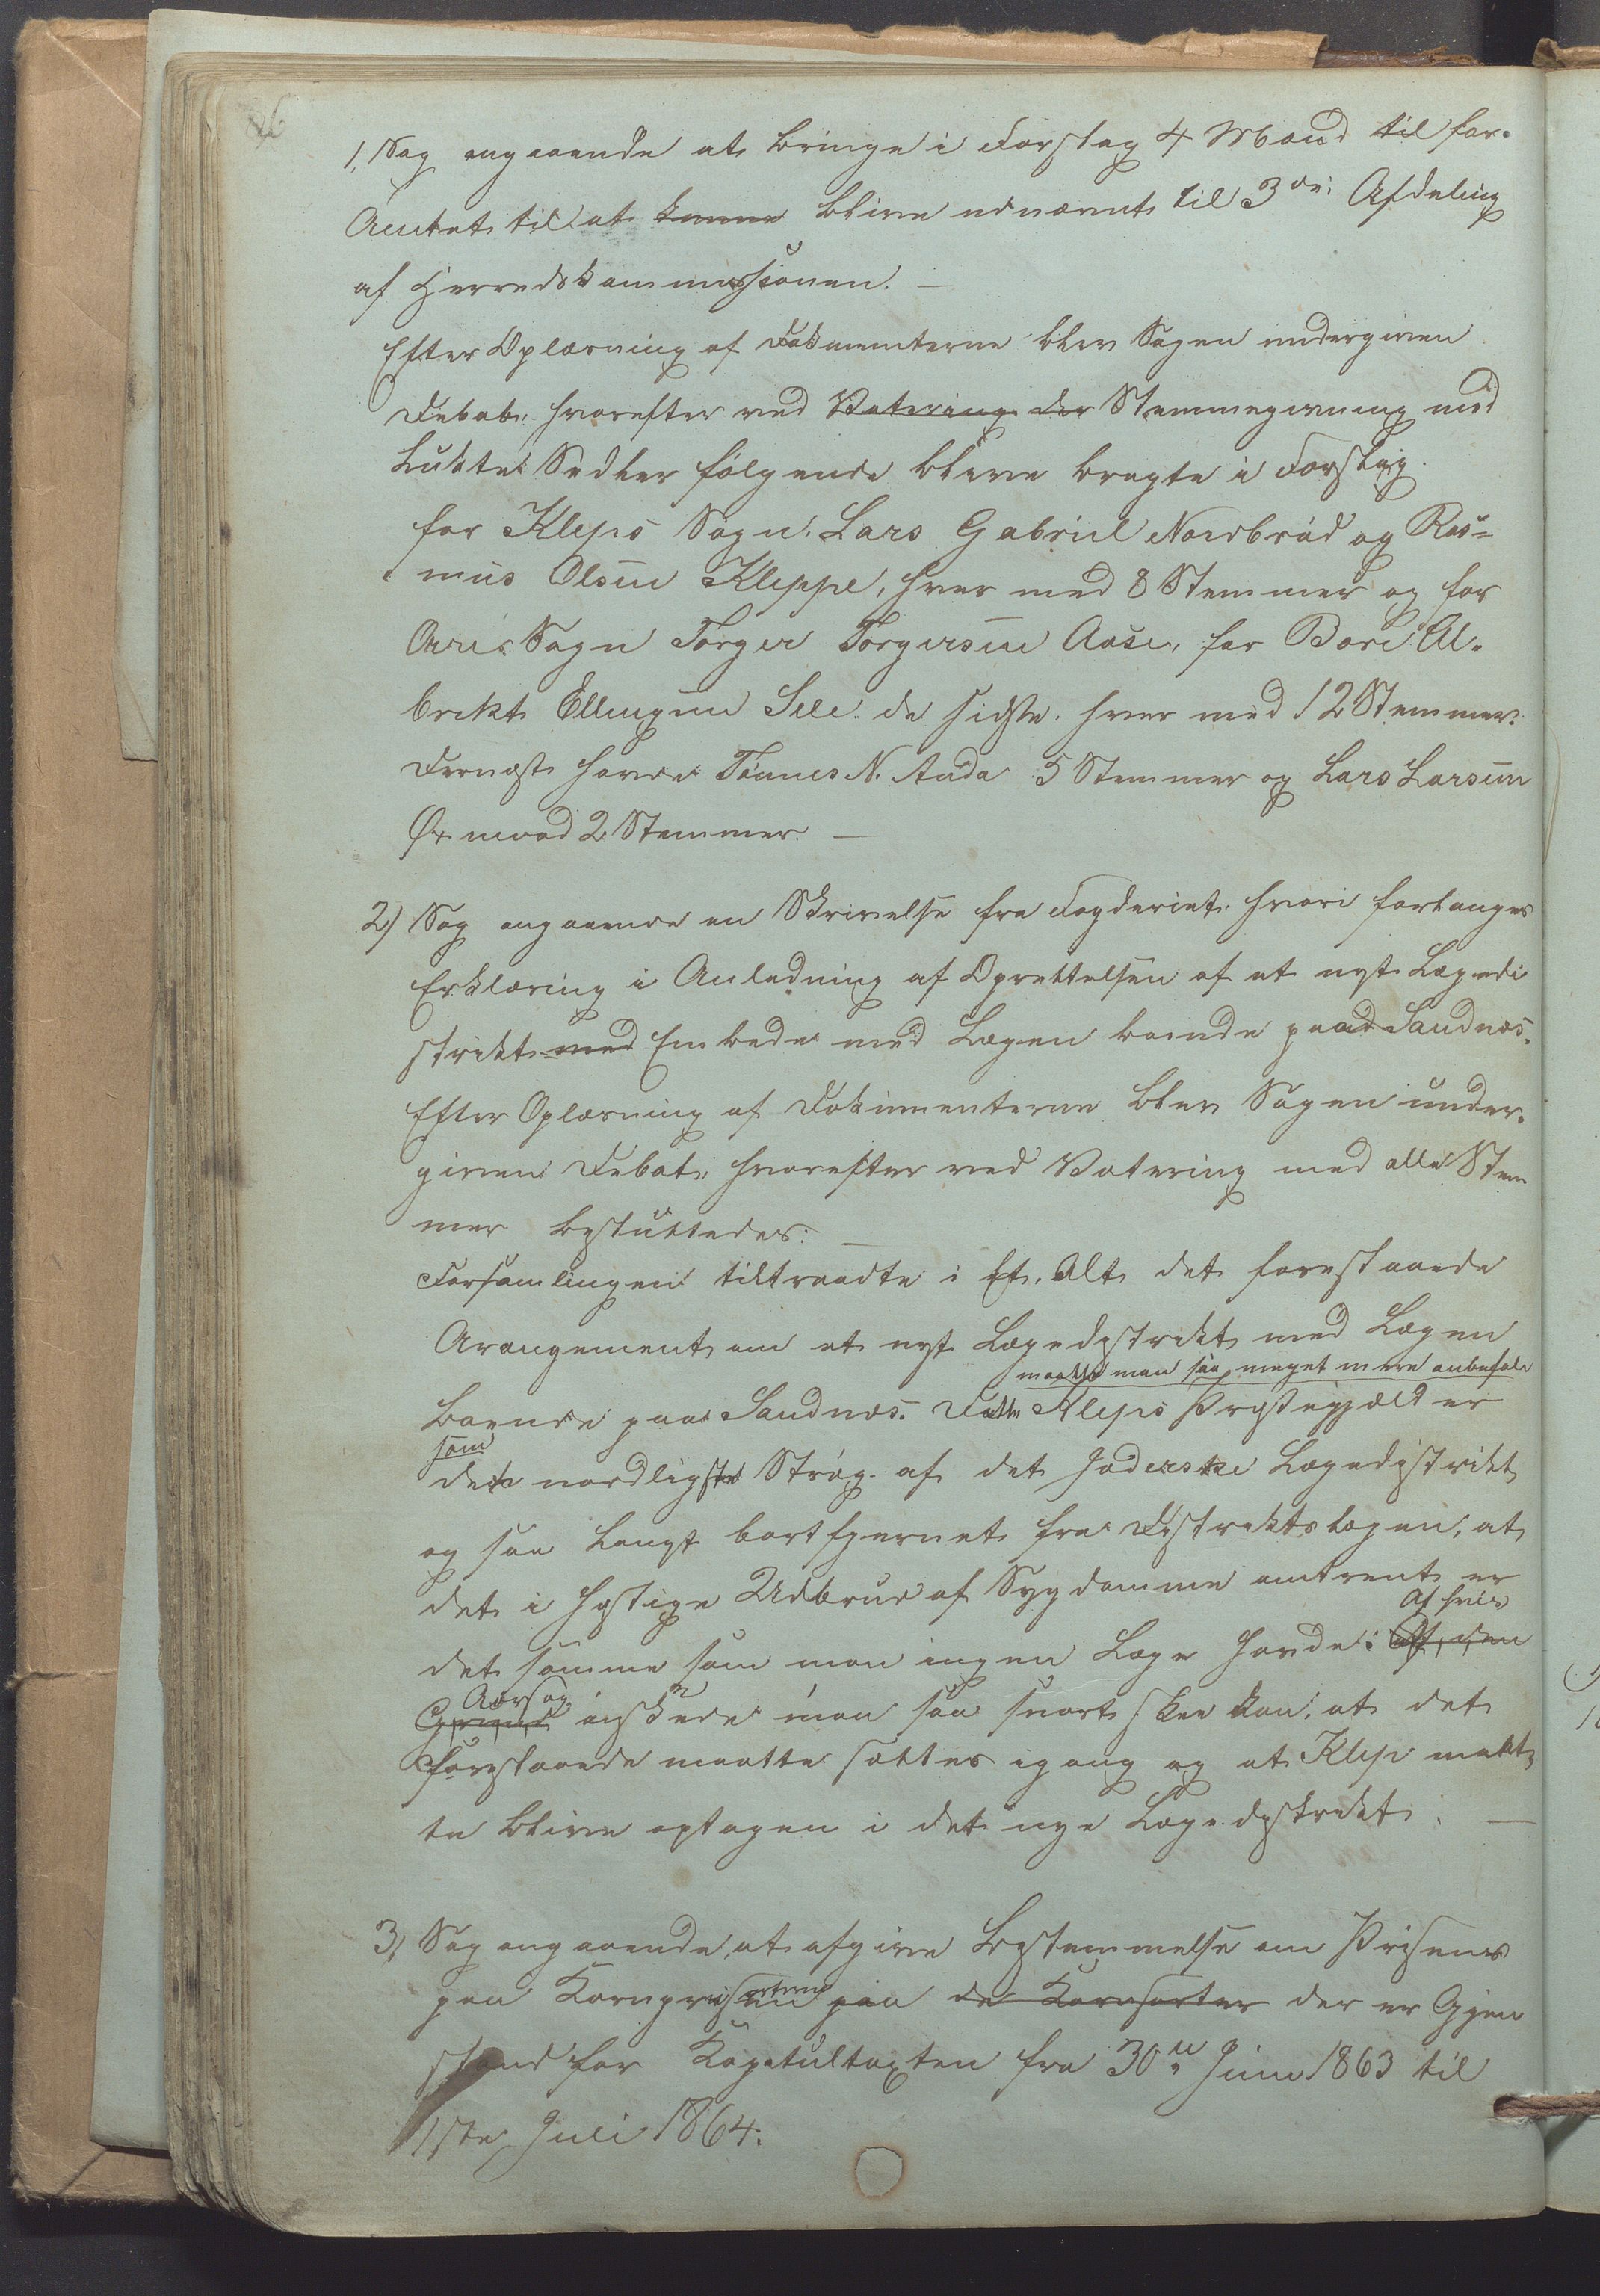 86
1, Sag angaaende at bringe i Forslag 4 Mænd til for.
Amtet til at kunne blive udnævnt til 3die Afdeling
af Herredskommissionen. —
Efter Oplæsning af Dokumenterne blev Sagen undergiven
Debat, hvorefter ved Votering der Stemmegivning med
lukte Sedler følgende bleve bragte i Forslag.
for Kleps Sogn: Lars Gabriel Nordbraad og Ras=
mus Olsen Kleppe, hver med 8 Stemmer og for
Orre Sogn Torger Torgersen Aase, for Bore Al=
brekt Ellingsen Sele. de sidste hver med 12 Stemmer.
Dernæst havde Tønnes N. Anda 5 Stemmer og Lars Larsen
Øxnevad 2 Stemmer. —
2) Sag angaaende en Skrivelse fra Fogderiet, hvori forlanges
Erklæring i Anledning af Oprettelsen af et nyt Lægedi
strikt med Embede med Lægen boende paa Sandnæs.
Efter Oplæsning af Dokumenterne blev Sagen under=
given Debat, hvorefter ved Votering med alle Stem
mer besluttedes: —
Forsamlingen tiltraadte i Et, Alt det forestaaende
Arangement om et nyt Lægedistrikt med Lægen
maatte man saa meget mere anbefale
boende paa Sandnæs. Dette Kleps Præstegjæld er
som
det nordligste Strøg af det Jæderske Lægedistrikt
og saa langt bortfjernet fra Distriktslægen, at
det i hastige Udbrud af Sygdomme omtrent er
Af hvis
det samme som man ingen Læge havde: Af den
Aarsag
Grund ønskede man saa snart skee kan, at det
forestaaende maatte sættes igang og at Klep maat,
te blive optagen i det nye Lægedistrikt. —
3, Sag angaaende at afgive Bestemmelse om Prisene
paa Kornprisen sorterne paa de Kornsorter der er Gjen
stand for Kapitultaxten fra 30te Juni 1863 til
1ste Juli 1864.